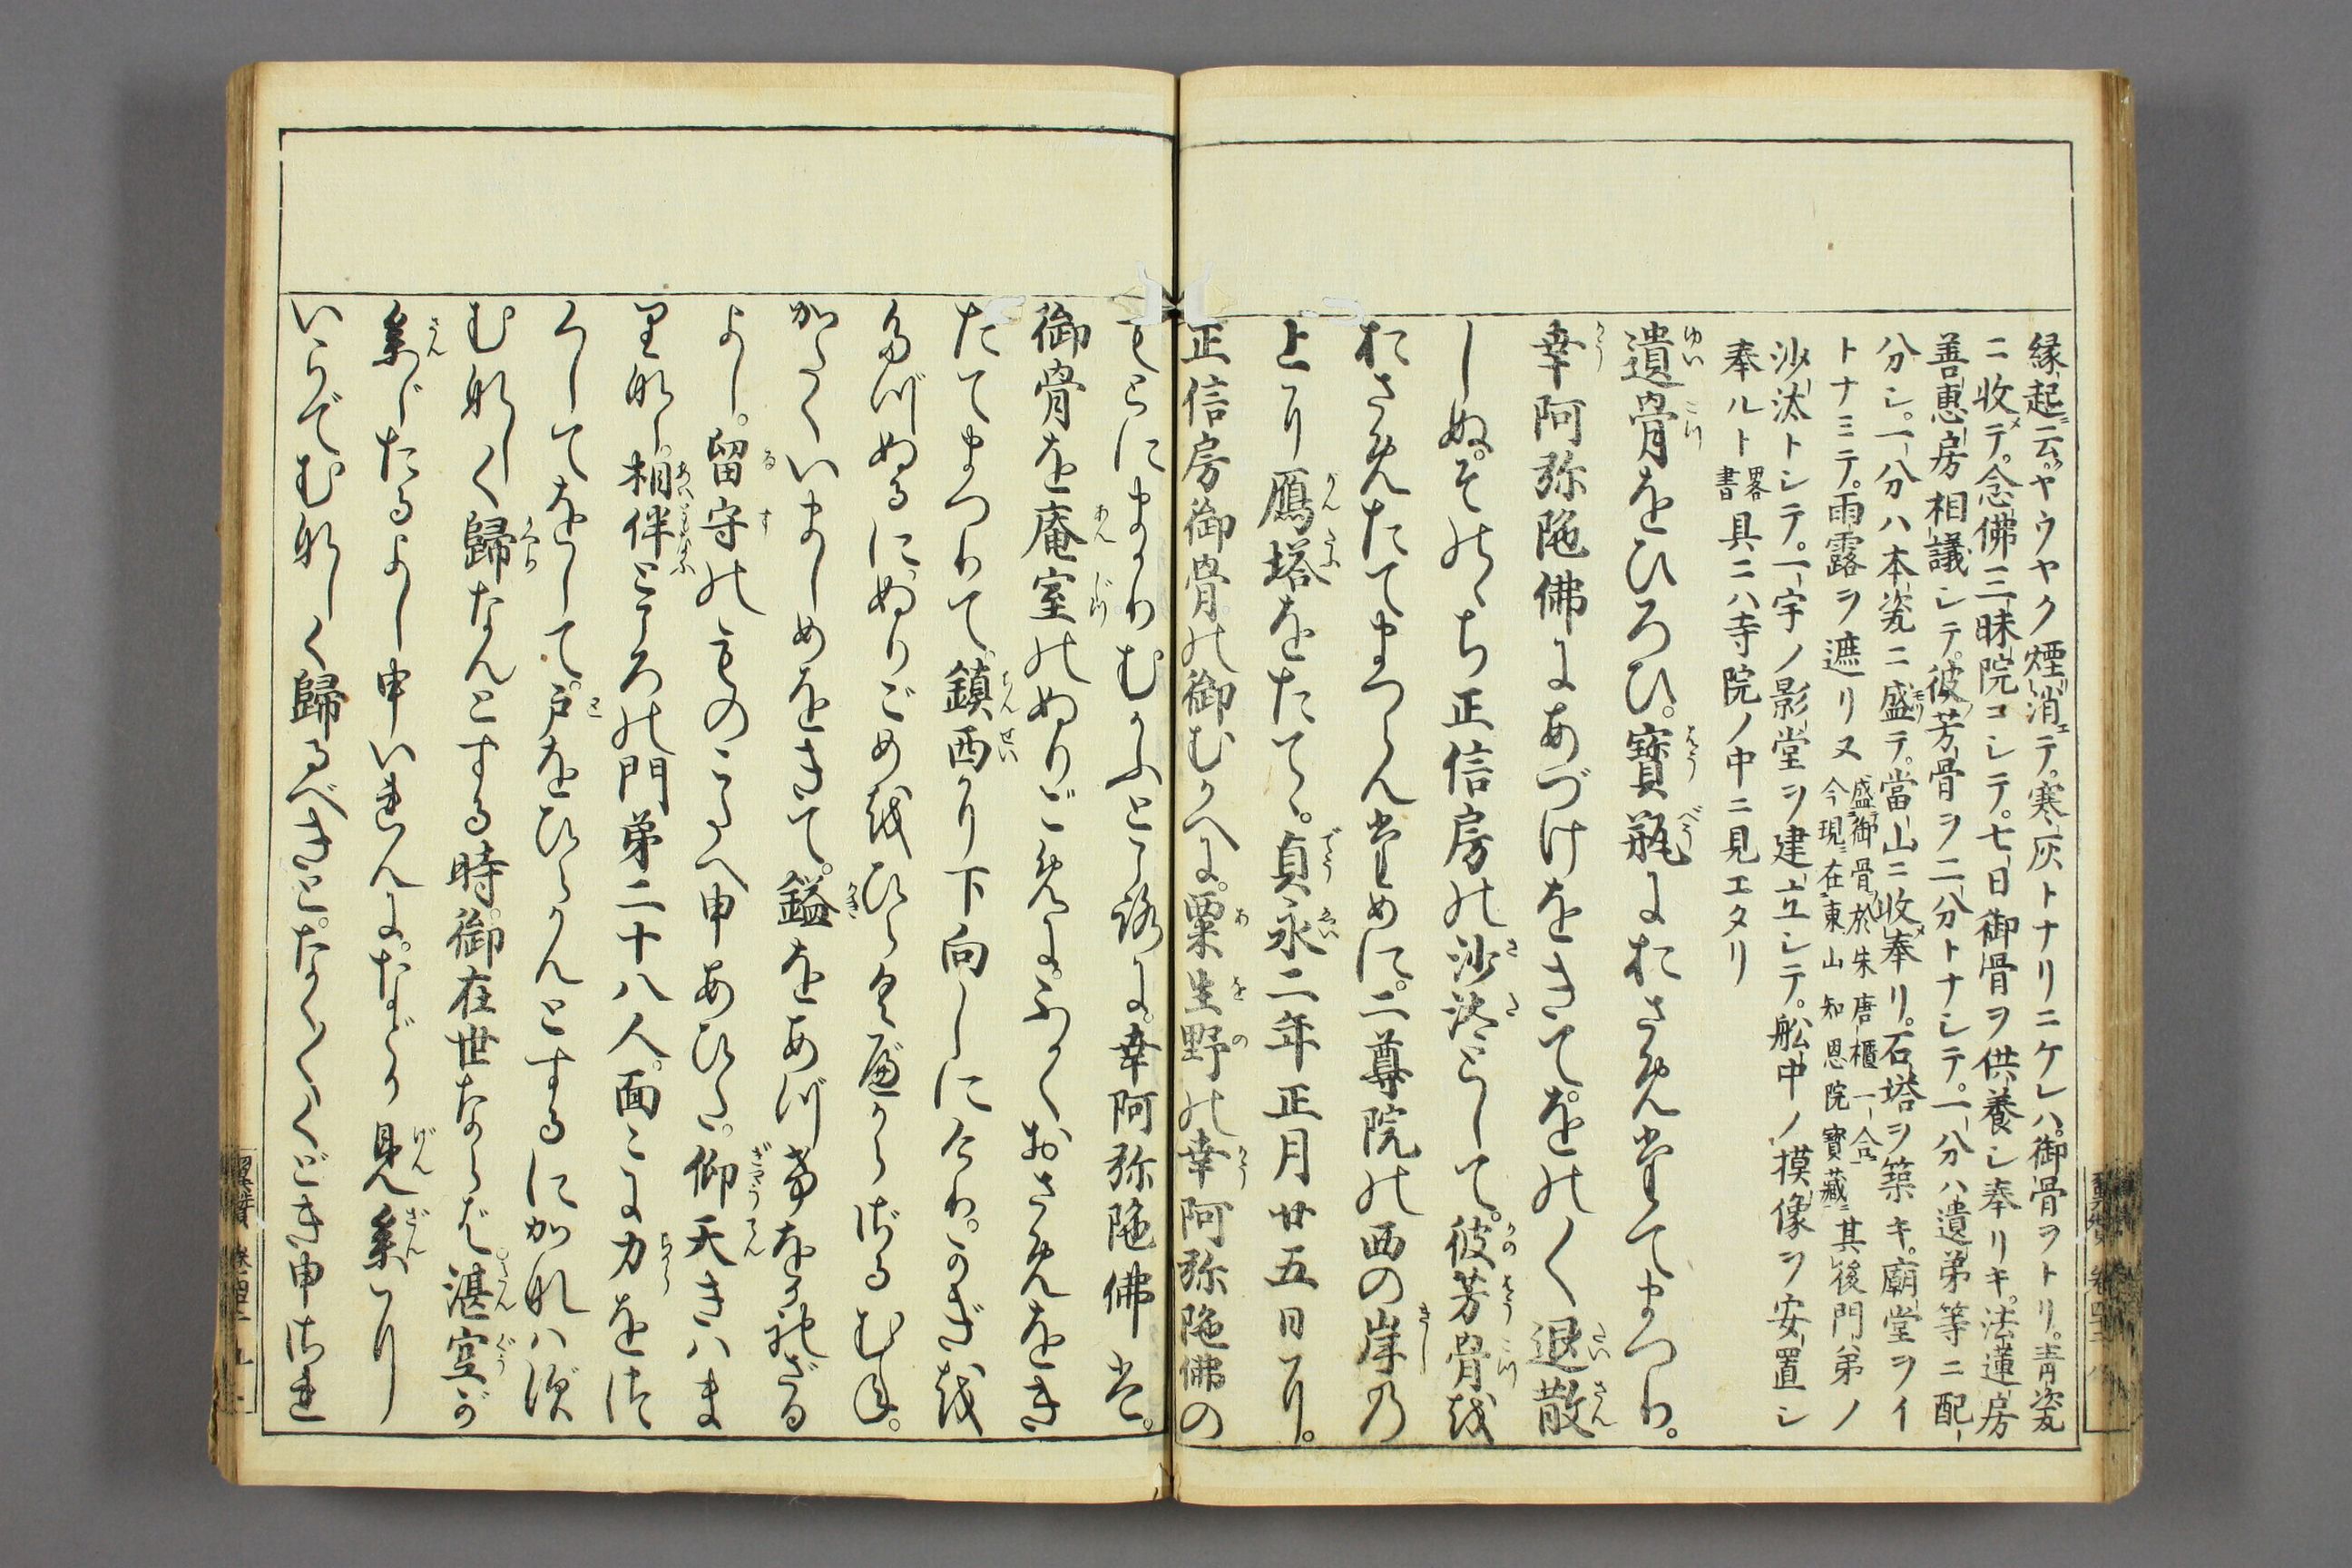 縁起云ヤウヤク煙消エテ寒灰トナリニケレハ御骨ヲトリ青瓷
ニ收メテ念佛三昧院コシテ七日御骨ヲ供養シ奉リキ法蓮房
善惠房相議シテ彼芳骨ヲ二分トナシテ一分ハ遺弟等ニ配
分シ一分ハ本瓷ニ盛テ當山ニ收メ奉リ石塔ヲ築キ廟堂ヲイ
トナミテ雨露ヲ遮リヌ盛御骨於朱唐櫃一合今現在東山知恩院寶藏其後門弟ノ
沙汰トシテ一宇ノ影堂ヲ建立シテ舩中ノ摸像ヲ安置シ
奉ルト畧書具ニハ寺院ノ中ニ見エタリ
遺骨をひろひ。寶瓶におさめたてまつり。
幸阿弥陀佛にあづけをきてをの〱退散
しぬ。そのゝち正信房の沙汰として。彼芳骨を
おさめたてまつらんために。二尊院の西の岸の
上に鴈塔をたてゝ。貞永二年正月廿五日に。
正信房御骨の御むかへに。粟生野の幸阿弥陀佛の
もとにまかりむかふところに。幸阿弥陀佛は。
御骨を庵室のぬりごめに。ふかくおさめをき
たてまつりて。鎮西に下向しにけり。かぎを
たづぬるに。ぬりごめをひらくべからざるむね。
かたくいましめをきて。鎰をあづけをかざる
よし。留守のものこたへ申あひだ。仰天きはま
りなし。相伴ところの門弟二十八人。面〻に力をは
くしてをして。戸をひらかんとするにかなはず
むなしく歸なんとする時。御在世ならば。湛空が
參じたるよし申いれんに。などか見參に
いらでむなしく歸るべきと。なく〱くどき申され